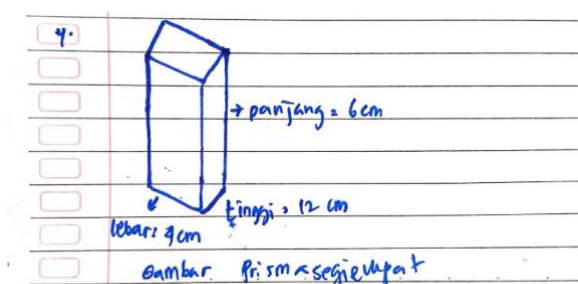 4.
→ panjang = 6 cm
tinggi = 12 cm
lebar: 4 cm
Gambar Prisma segiempat